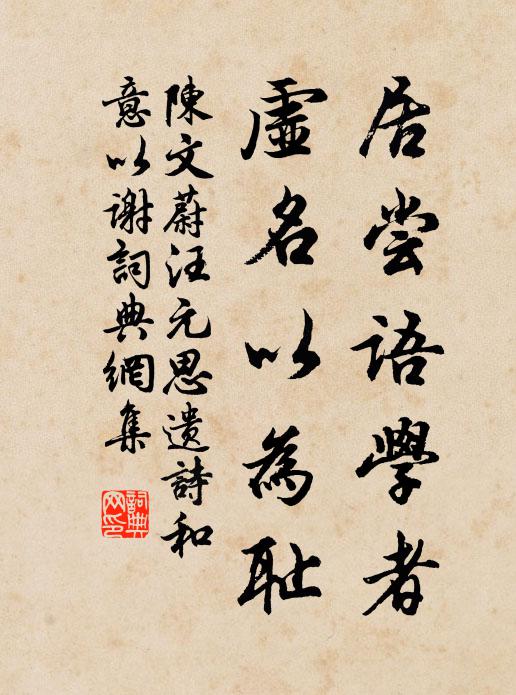 居尝語學者
虛名以為耻
陳文蔚汪元思遺詩和
意以謝詞典網集
詞典
网印